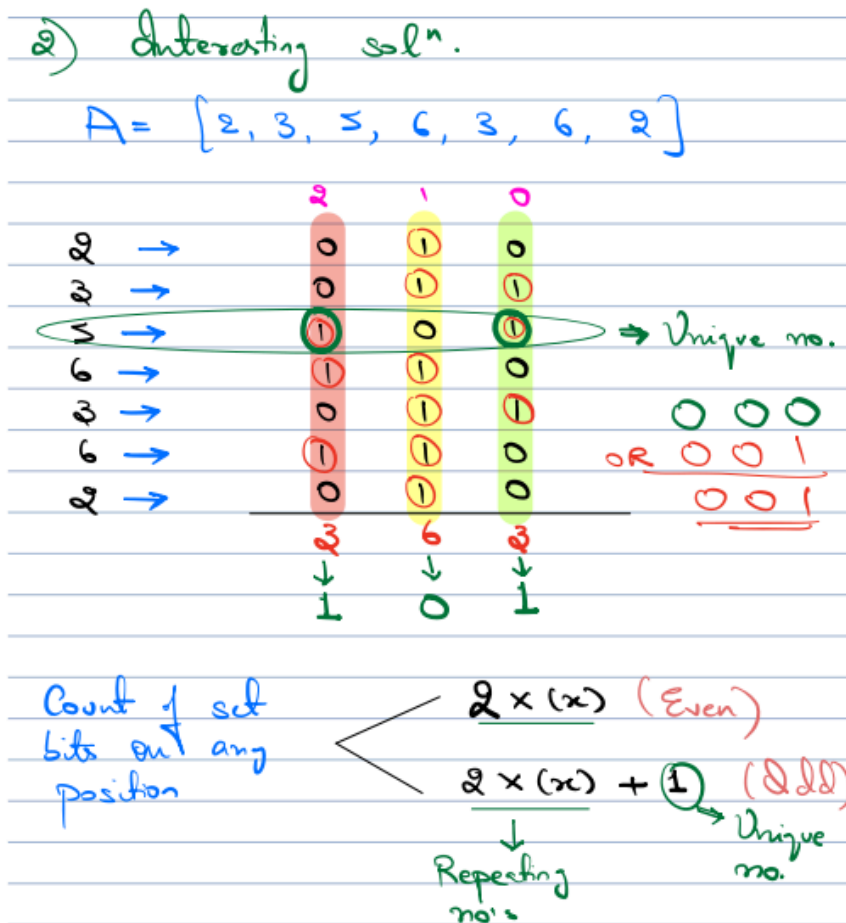 2) Interesting solⁿ.
A = [2, 3, 5, 6, 3, 6, 2]
2 1 0
2 → 0 1 0
3 → 0 1 1
5 → 1 0 1 ⇒ Unique no.
6 → 1 1 0
3 → 0 1 1 0 0 0
6 → 1 1 0 OR 0 0 1
2 → 0 1 0 0 0 1
3 6 3
↓ ↓ ↓
1 0 1
Count of set bits on any position
2 × (x) (Even)
2 × (x) + 1 (Odd)
↓ → Unique no.
Repeating no's